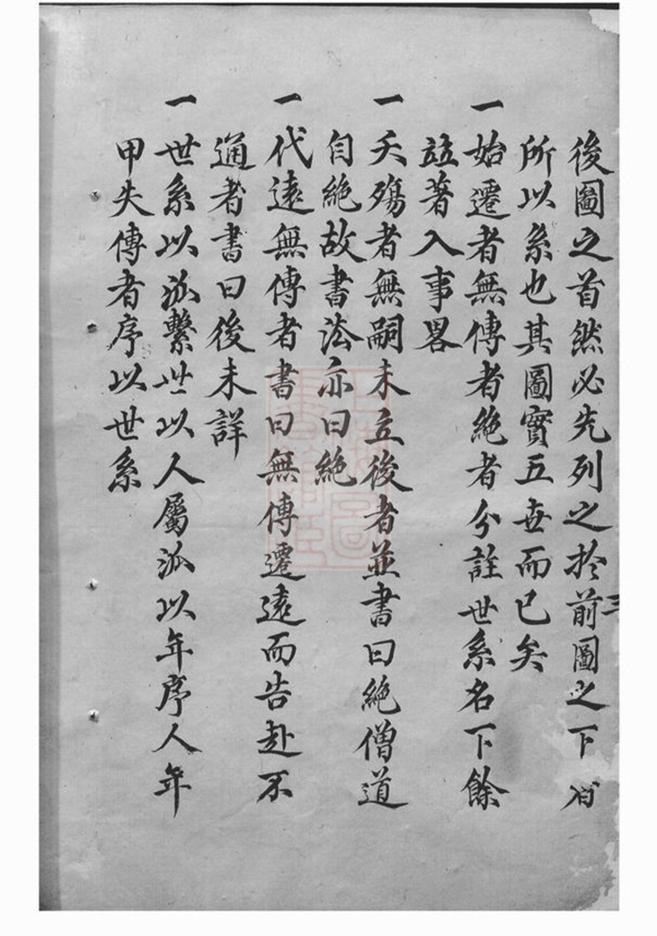 後圖之首然必先列之於前圖之下
所以系也其圖實五世而已矣
一始遷者無傳者絕者分註世系名下餘
並著入事畧
一夭殤者無嗣未立後者並書曰絕僧道
自絕故書法亦曰絕
一代遠無傳者書曰無傳遷遠而告赴不
通者書曰後未詳
一世系以派繫世以人屬派以年序人年
甲失傳者序以世系